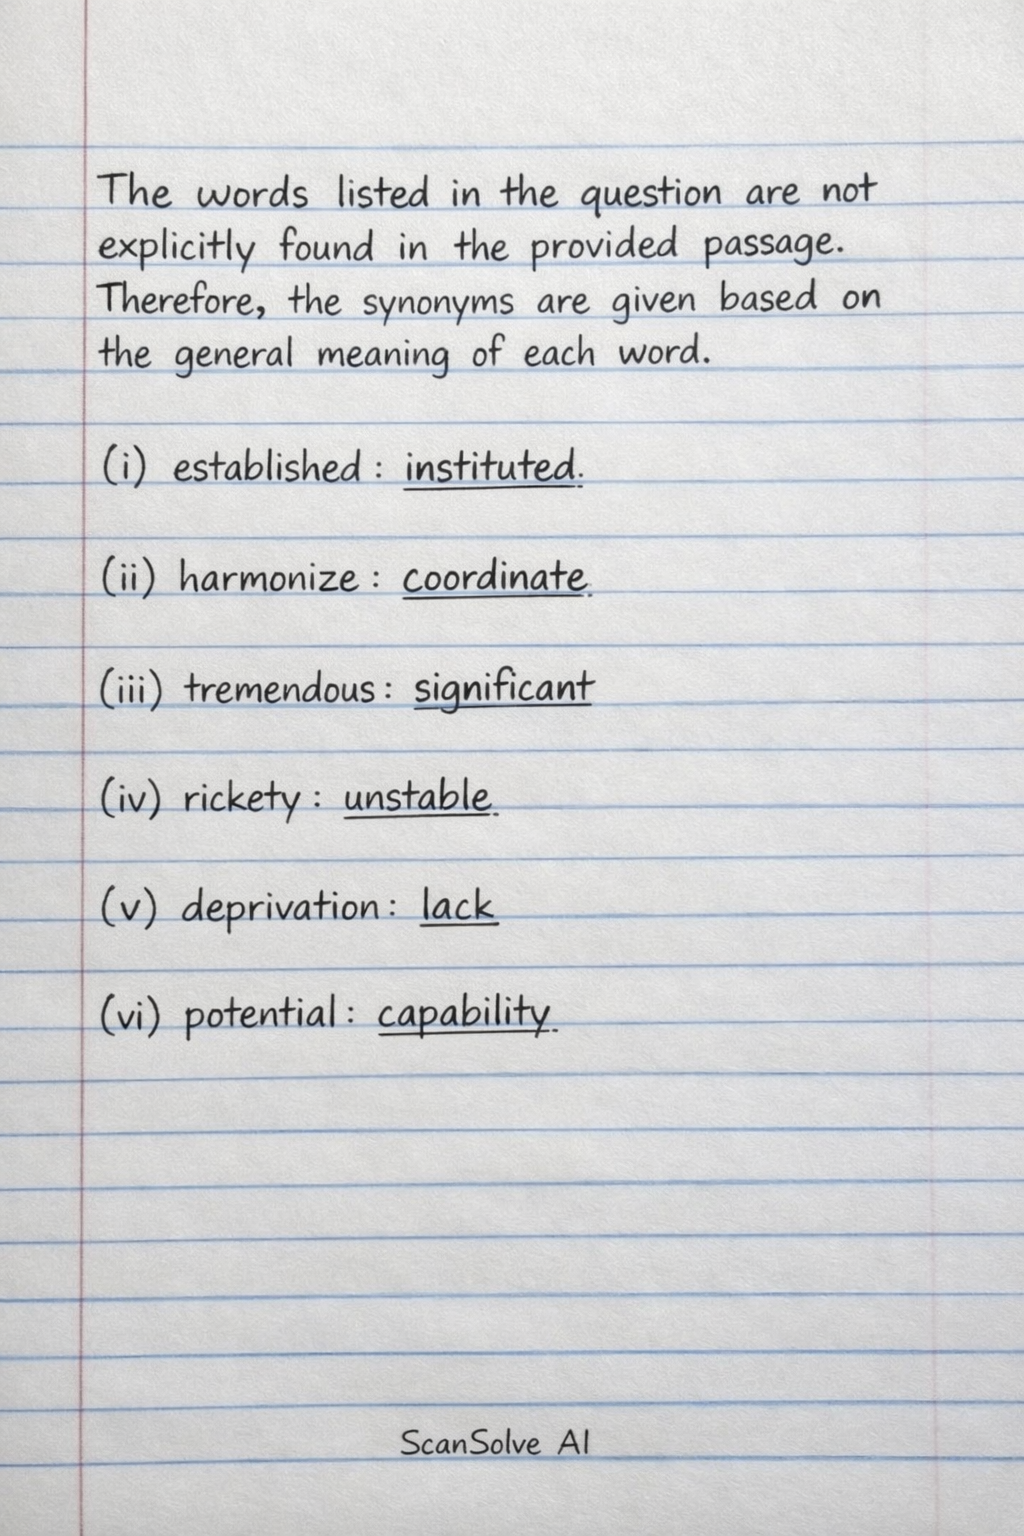 The words listed in the question are not
explicitly found in the provided passage.
Therefore, the synonyms are given based on
the general meaning of each word.
(i) established : instituted.
(ii) harmonize : coordinate.
(iii) tremendous : significant
(iv) rickety : unstable.
(v) deprivation : lack
(vi) potential : capability.
ScanSolve AI